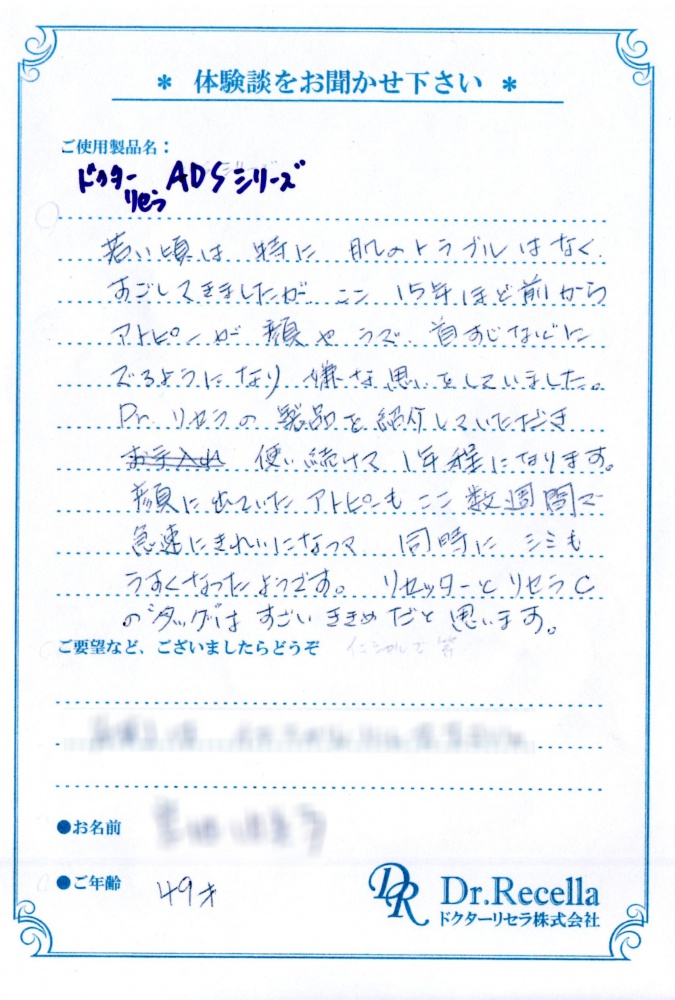 * 体験談をお聞かせ下さい *
ご使用製品名：
ドクター
リセラ ADSシリーズ
若い頃は 特に 肌のトラブルはなく
すごしてきましたが ここ 15年ほど前から
アトピーが 顔や ウデ、首すじなどに
でるようになり 嫌な思いをしていました。
Dr.リセラの製品を紹介していただき
お手入れ 使い続けて 1年程になります。
顔に出ていたアトピーも ここ 数週間で
急速にきれいになって 同時に シミも
うすくなったようです。 リセッターとリセラC
のタッグは すごい ききめだと思います。
ご要望など、ございましたらどうぞ
●お名前
●ご年齢 49才
DR Dr.Recella
ドクターリセラ株式会社